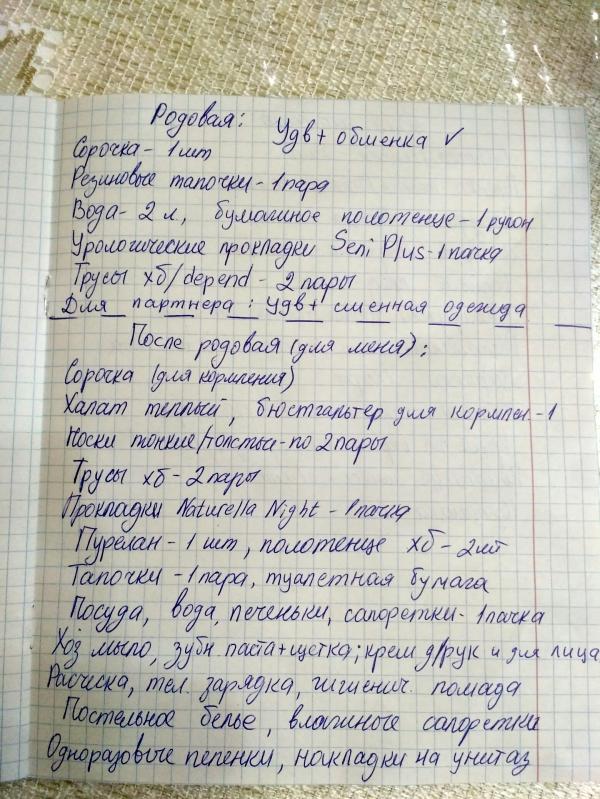 Родовая: Удв+ обменка ✓
Сорочка - 1 шт
Резиновые тапочки - 1 пара
Вода - 2 л, бумагиное полотенце - 1 рулон
Урологические прокладки Seni Plus - 1 пачка
Трусы хб/depend - 2 пары
Для партнера: удв+ сменная одежда
После родовая (для меня):
Сорочка (для кормления)
Халат теплый, бюстгальтер для кормлен. - 1
Носки тонкие/толстые - по 2 пары
Трусы хб - 2 пары
Прокладки Naturella Night - 1 пачка
Пурелан - 1 шт, полотенце хб - 2 шт
Тапочки - 1 пара, туалетная бумага
Посуда, вода, печеньки, салфетки - 1 пачка
Хоз мыло, зубн. паста+щетка; крем д/рук и для лица
Расческа, тел. зарядка, гигиенич. помада
Постельное белье, влагиные салфетки
Одноразовые пеленки, накладки на унитаз